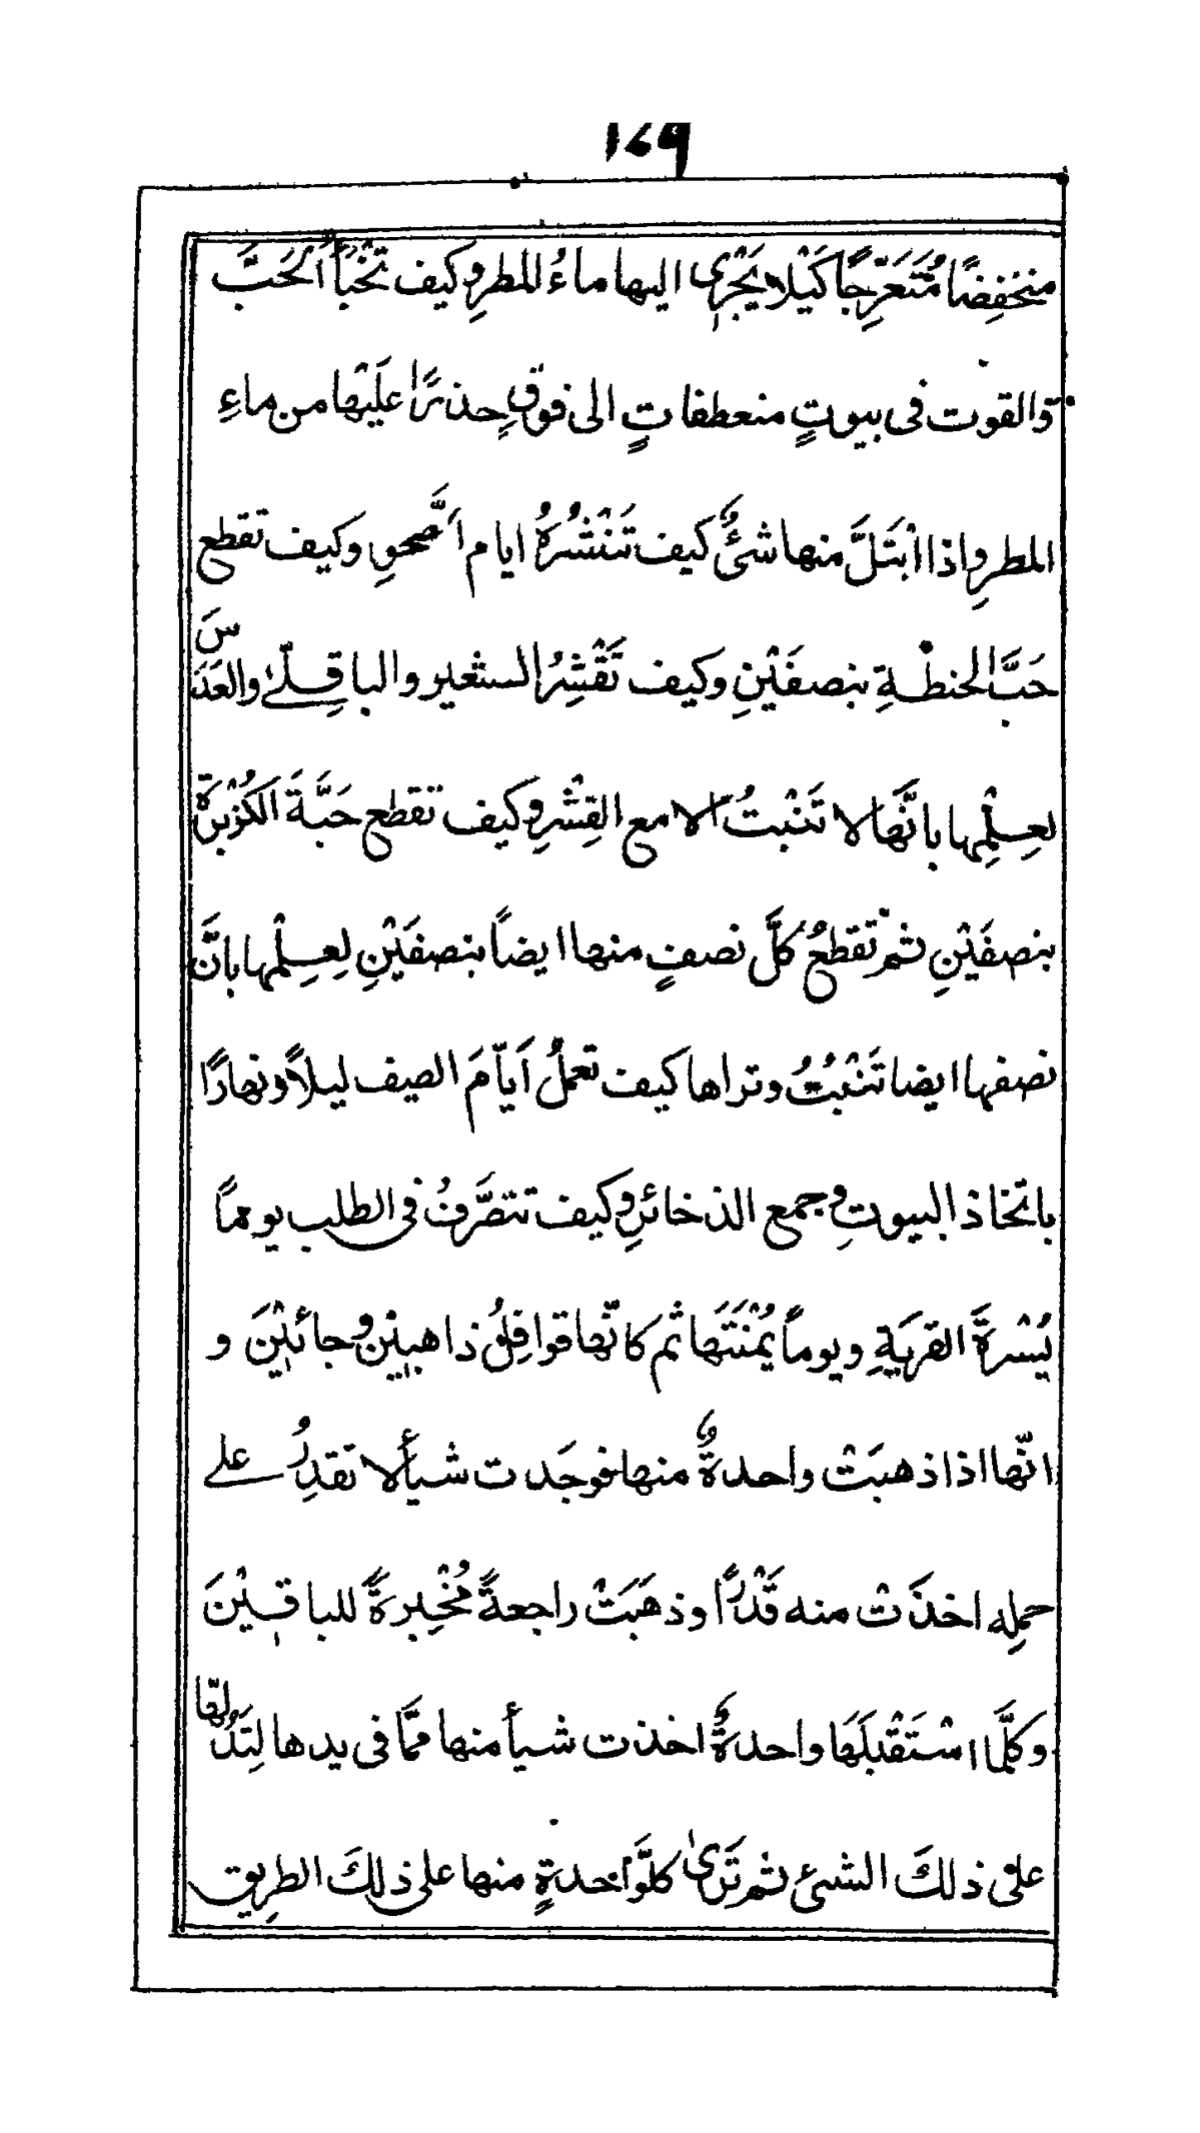 ۱۷۹
منخَفِضًا مُتَعَرِّجًا كَيْلا يَجْرِى اليها ماءُ المطرِ وكيف تَخْبَأُ الحَبَّ
والقوت فى بيوتٍ منعطفاتٍ الى فوقٍ حِذرًا علَيْها من ماءِ
المطرِ واذا ابْتَلَّ منها شئٌ كيف تَنْشُرُهُ ايام اَلصَّحوِ وكيف تقطع
حَبَّ الحنطةِ بنصفَيْنِ وكيف تَقْشِرُ الشعير والباقِلّے والعَدَسَ
لعِلْمِها بانَّها لا تَنْبتُ الا مع القِشْرِ وكيف تقطع حَبَّةَ الكُزْبرَةِ
بنصفَيْنِ ثمّ تقطعُ كلَّ نصفٍ منها ايضاً بنصفَيْنِ لِعِلْمِها بانَّ
نصفها ايضا تَنْبُتُ وتراها كيف تعملُ اَيّامَ الصيف ليلاً ونهارًا
باتخاذ البيوتِ وجمع الذخائرِ وكيف تتصَّرفُ فى الطلب يوماً
يَسْرةَ القريَةِ ويوماً يُمْنَتَها ثم كانّها قوافِلُ ذاهبِيْن وجائبِيْنَ و
انّها اذا ذهبَتْ واحدةٌ منها فوجَدت شيأً لا تقدِرُ علے
حملِه اخذَتْ منه قَدْرًا وذهَبَتْ راجعةً مُخْبِرةً للباقِيْنَ
وكلَّما اسْتَقْبلَها واحدةٌ اخذت شيأً منها ممَّا فى يدها لِتَدُلَّها
على ذلكَ الشئ ثم تَرىٰ كلَّ واحدةٍ منها على ذلِكَ الطرِيق